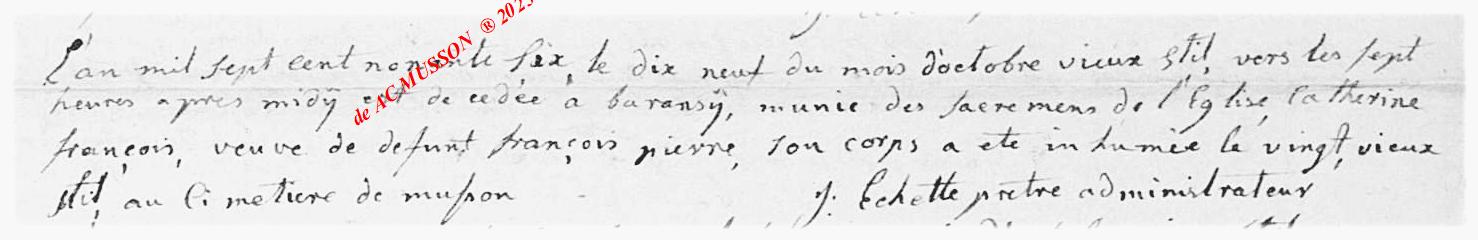 L'an mil sept cent nonente six, le dix neuf du mois d'octobre vieux stil, vers les sept
heures apres midÿ est decedée a baransÿ, munie des sacremens de l'Eglise, Catherine
françois, veuve de defunt françois pierre, son corps a ete inhumée le vingt, vieux
stil, au Cimetiere de musson
J. Echette pretre administrateur
de AGMUSSON ® 2023